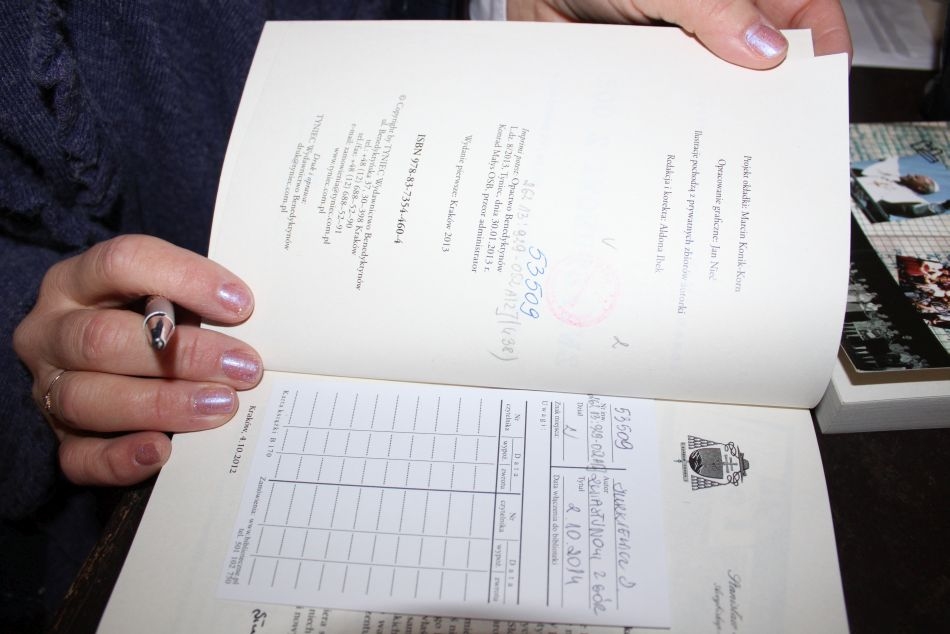 Projekt okładki: Marcin Konik-Korn
Opracowanie graficzne: Jan Nieć
Ilustracje pochodzą z prywatnych zbiorów autorki
Redakcja i korekta: Aldona Ibek
2
V
53509
Imprimi potest: Opactwo Benedyktynów
L.dz. 8/2013, Tyniec, dnia 30.01.2013 r.
Konrad Małys OSB, przeor administrator
Wydanie pierwsze: Kraków 2013
ISBN 978-83-7354-460-4
© Copyright by TYNIEC Wydawnictwo Benedyktynów
ul. Benedyktyńska 37, 30-398 Kraków
tel.: +48 (12) 688-52-90
tel./fax: +48 (12) 688-52-91
e-mail: zamowienia@tyniec.com.pl
www.tyniec.com.pl
Druk i oprawa:
Wydawnictwo Benedyktynów
TYNIEC
druk@tyniec.com.pl
Stanisław
Kraków, 4.10.2012
53509
Nr inw.
Autor
Dział
Tytuł
Znak miejsca
Data włączenia do biblioteki
2 10.2014
Uwagi:
Nr czytelnika
Data
wypoż.
zwrotu
Nr czytelnika
Data
wypoż.
zwrotu
Karta książki B 170
Zamówienia: www.biblioteczne.pl
tel. 501 102 750